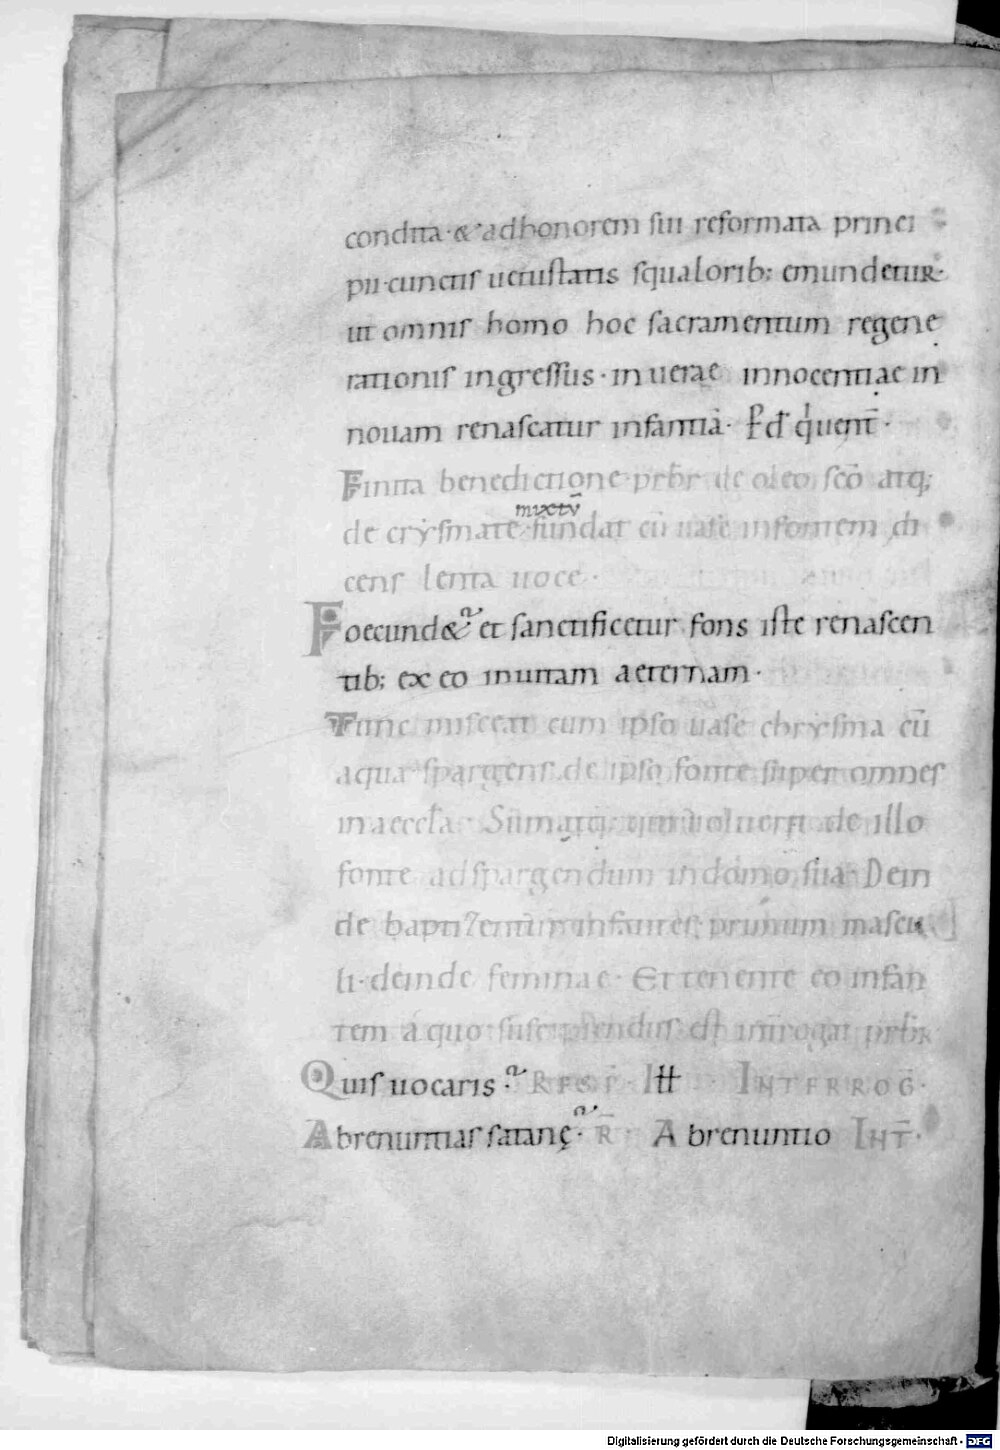 condita · & ad honorem sui reformata princi
pii · cunctis uetustatis squaloribꝫ emundetur ·
ut omnis homo hoc sacramentum regene
rationis ingressus · in uerae innocentiae in
nouam renascatur infantiā · P d̄ q uent̄ ·
Finita benedictione prb̄r de oleo sc̄o atqꝫ
mixtū
de crẏsmate · fundat cū uase in fontem di
cens lenta uoce ·
Foecund& et sanctificetur fons iste renascen
tibꝫ ex eo in uitam aeternam ·
Tunc misceat cum ipso uase chrẏsma cū
aqua spargens de ipso fonte super omnes
in aeccl̄a · Sumatqꝫ uoluerit de illo
fonte ad spargendum in domo sua · Dein
de baptizentur infantes · primum mascu
li · deinde feminae · Et tenente eo infan
tem a quo suscipiendus est int̄rogat prb̄r
Quis uocaris · Resp̄ · Ill Interroḡ ·
Abrenuntias satanę · R̄ · Abrenuntio Int̄ ·
Digitalisierung gefördert durch die Deutsche Forschungsgemeinschaft - DFG